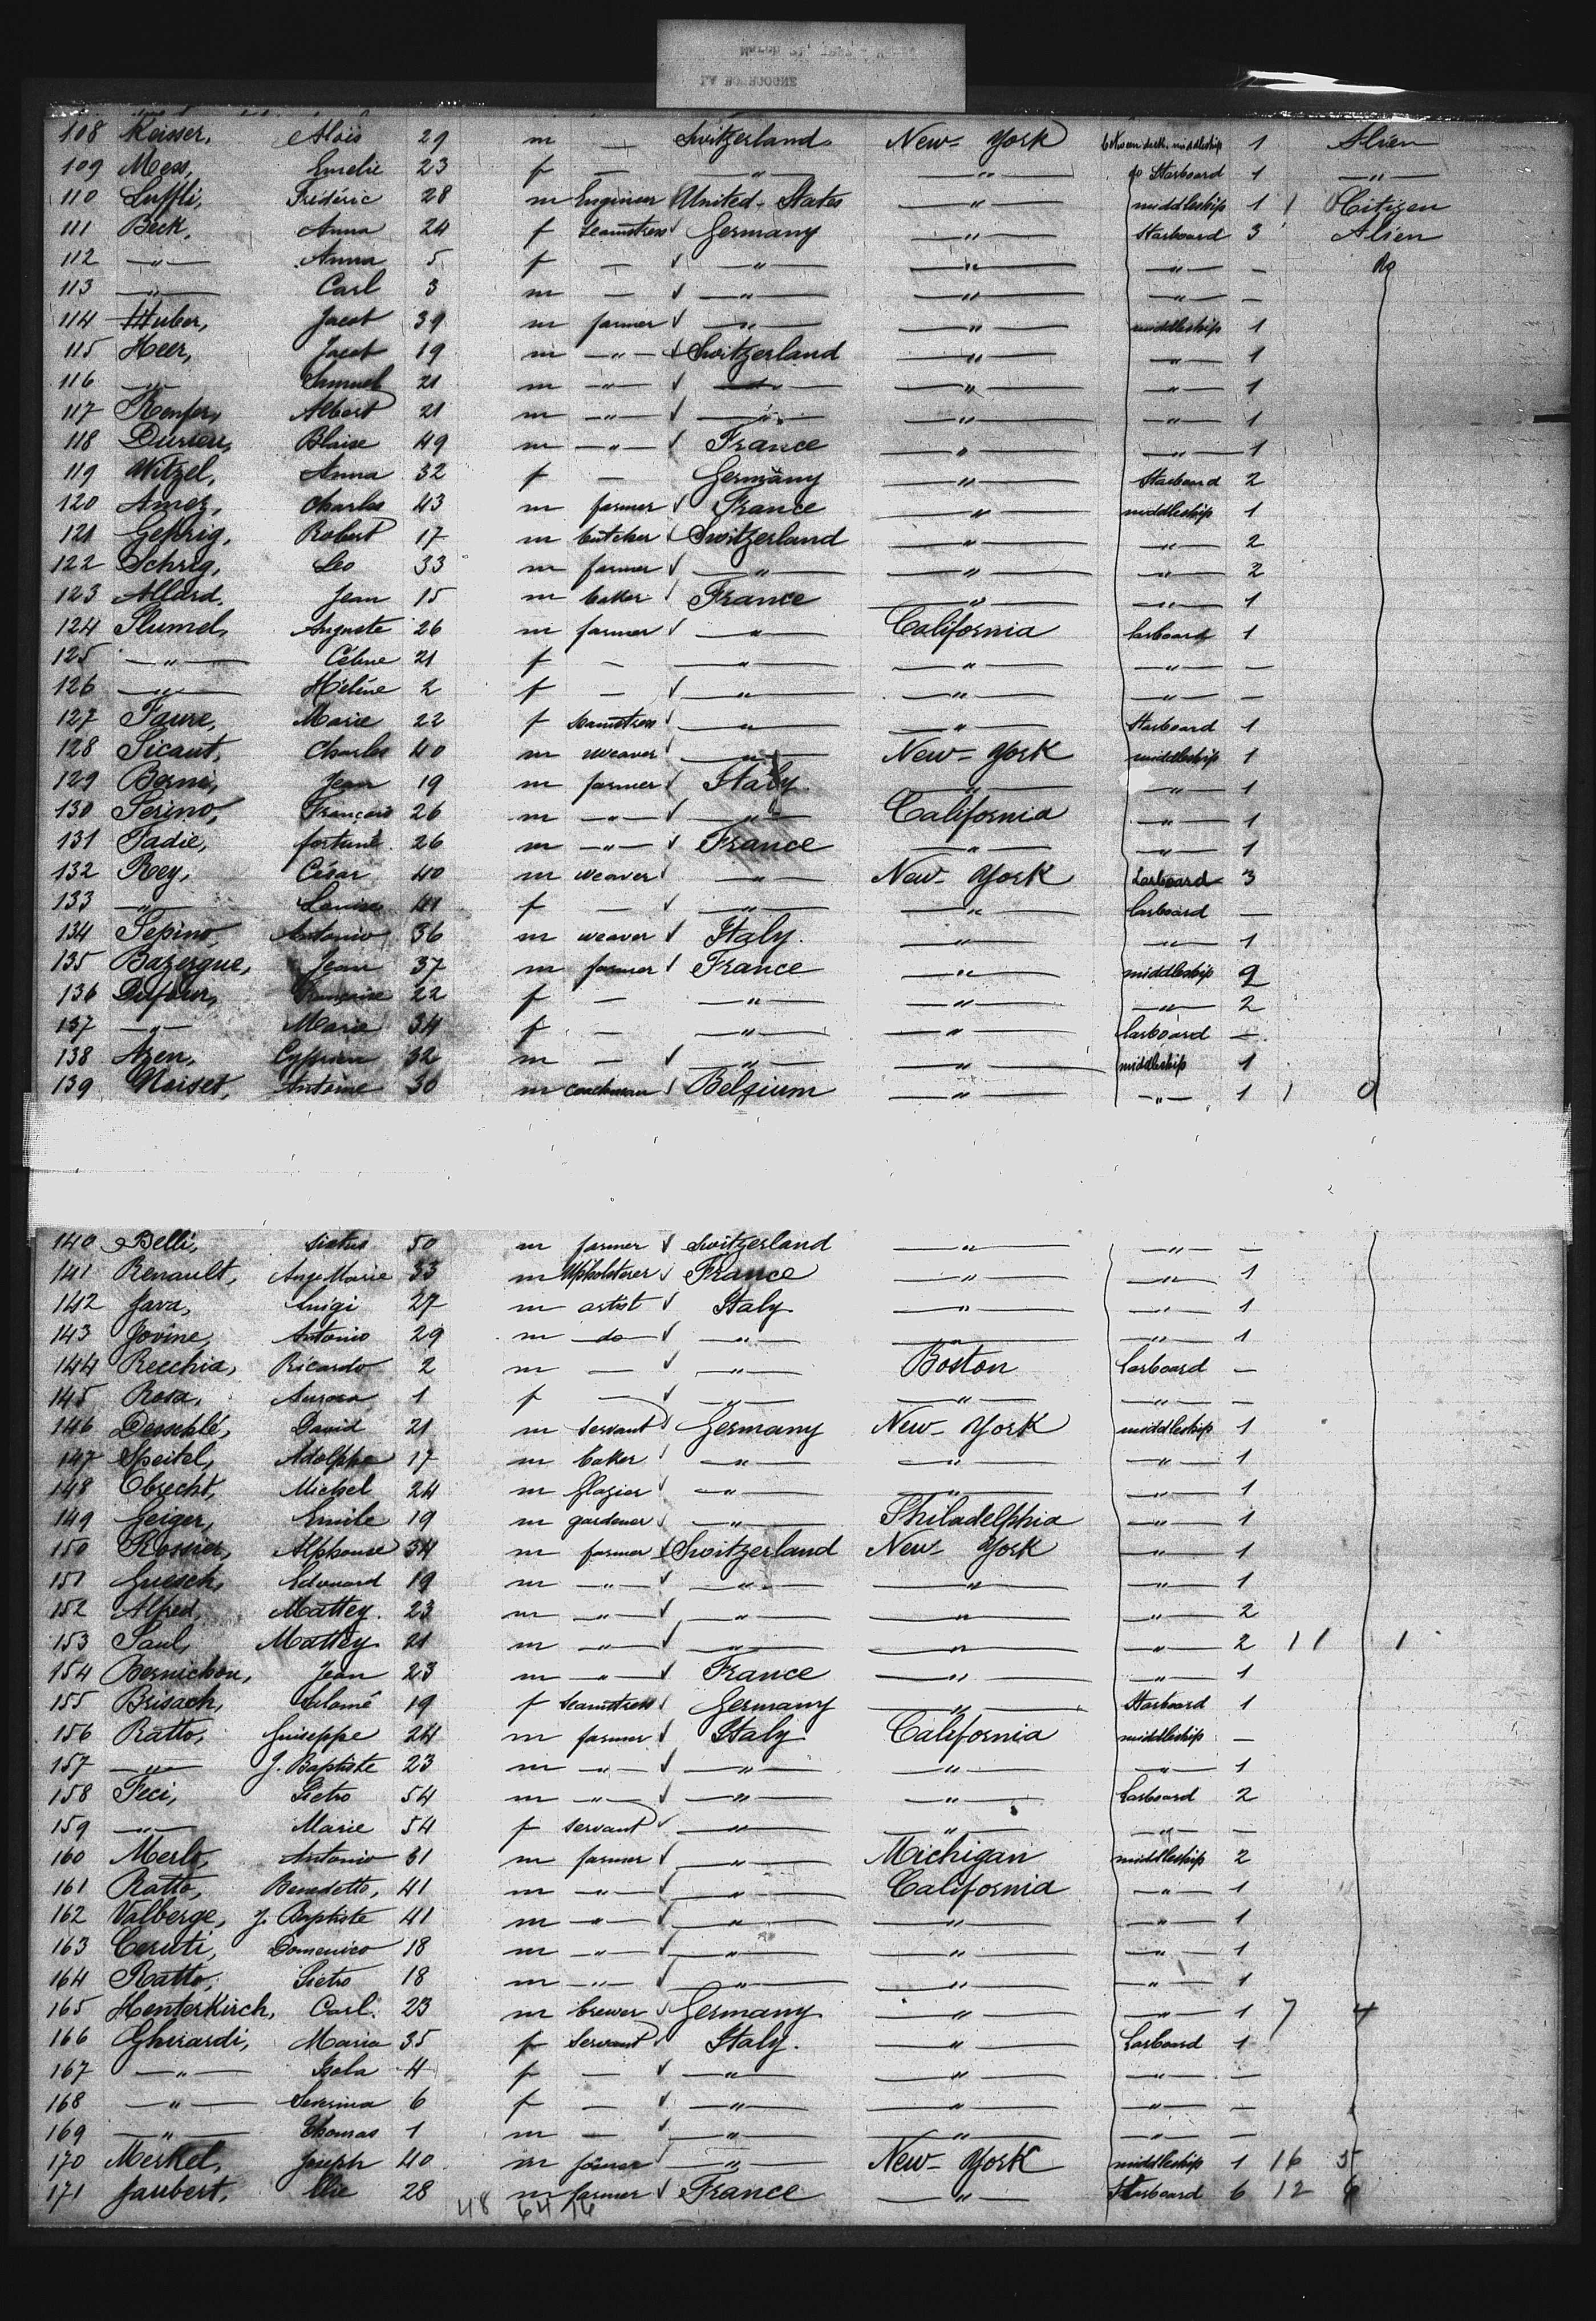 108 Keisser, Alois 29 m — Switzerland New-York between deck middleship 1 Alien
109 Mess, Emelie 23 f — —"— —"— do Starboard 1 —"—
110 Luffli, Frédéric 28 m Engineer United-States —"— middleship 1 1 Citizen
111 Beck, Anna 24 f Seamstress Germany —"— Starboard 3 Alien
112 —"— Anna 5 f — —"— —"— —"— — Do
113 —"— Carl 3 m — —"— —"— —"— —
114 Huber, Jacob 39 m farmer —"— —"— middleship 1
115 Heer, Jacob 19 m —"— Switzerland —"— —"— 1
116 —"— Samuel 21 m —"— —"— —"— —"— 1
117 Renfer, Albert 21 m —"— —"— —"— —"— 1
118 Durieu, Blaise 49 m —"— France —"— —"— 1
119 Witzel, Anna 32 f — Germany —"— Starboard 2
120 Amez, Charles 43 m farmer France —"— middleship 1
121 Gehrig, Robert 17 m butcher Switzerland —"— —"— 2
122 Schreg, Leo 33 m farmer —"— —"— —"— 2
123 Allard, Jean 15 m baker France —"— —"— 1
124 Plumel, Auguste 26 m farmer —"— California larboard 1
125 —"— Céline 21 f — —"— —"— —"— —
126 —"— Héléne 2 f — —"— —"— —"— —
127 Faure, Marie 22 f Seamstress —"— —"— Starboard 1
128 Picaut, Charles 40 m weaver —"— New-York middleship 1
129 Berni, Jean 19 m farmer Italy —"— —"— 1
130 Perino, François 26 m —"— —"— California —"— 1
131 Fadie, fortuné 26 m —"— France —"— —"— 1
132 Rey, César 40 m weaver —"— New-York Larboard 3
133 —"— Louise 41 f — —"— —"— larboard —
134 Pepino, Antonio 36 m weaver Italy. —"— —"— 1
135 Bazergue, Jean 37 m farmer France —"— middleship 2
136 Dufour, Françoise 22 f — —"— —"— —"— 2
137 —"— Marie 34 f — —"— —"— larboard —
138 Azen, Cyprien 32 m — —"— —"— middleship 1
139 Noiset, Antoine 30 m coachman Belgium —"— —"— 1 1 0
140 Belli, Sixtus 50 m farmer Switzerland —"— —"— —
141 Renault, Ange Marie 33 m Upholsterer France —"— —"— 1
142 Java, Luigi 27 m artist Italy —"— —"— 1
143 Jovine, Antonio 29 m do —"— —"— —"— 1
144 Recchia, Ricardo 2 m — —"— Boston larboard —
145 Rosa, Aurora 1 f — —"— —"— —"— —
146 Desschlé, David 21 m Servant Germany New-York middleship 1
147 Speitel, Adolphe 17 m baker —"— —"— —"— 1
148 Obrecht, Michel 24 m glazier —"— —"— —"— 1
149 Geiger, Emile 19 m gardener —"— Philadelphia —"— 1
150 Rossier, Alphonse 34 m farmer Switzerland New-York —"— 1
151 Guesch, Edouard 19 m —"— —"— —"— —"— 1
152 Alfred, Mattey. 23 m —"— —"— —"— —"— 2
153 Paul, Mattey 21 m —"— —"— —"— —"— 2 11 1
154 Bernichon, Jean 23 m —"— France —"— —"— 1
155 Brisach, Salomé 19 f Seamstress Germany —"— Starboard 1
156 Ratto, Guiseppe 24 m farmer Italy California middleship —
157 —"— J. Baptiste 23 m —"— —"— —"— —"— 1
158 Feci, Pietro 54 m —"— —"— —"— Larboard 2
159 —"— Marie 54 f servant —"— —"— —"— —
160 Merlo, Antonio 31 m farmer —"— Michigan middleship 2
161 Ratto, Benedetto, 41 m —"— —"— California —"— 1
162 Valberge, J. Baptiste 41 m —"— —"— —"— —"— 1
163 Ceruti, Domenico 18 m —"— —"— —"— —"— 1
164 Ratto, Pietro 18 m —"— —"— —"— —"— 1
165 Henterkirch, Carl. 23 m brewer Germany —"— —"— 1 7 4
166 Ghirardi, Maria 35 f Servant Italy. —"— Larboard 1
167 —"— Isola 4 f — —"— —"— —"— —
168 —"— Severina 6 f — —"— —"— —"— —
169 —"— Thomas 1 m — —"— —"— —"— —
170 Merkel, Joseph 40 m farmer —"— New-York middleship 1 16 5
171 Jaubert, Elie 28 m farmer France —"— Starboard 6 12 6
48 64 16